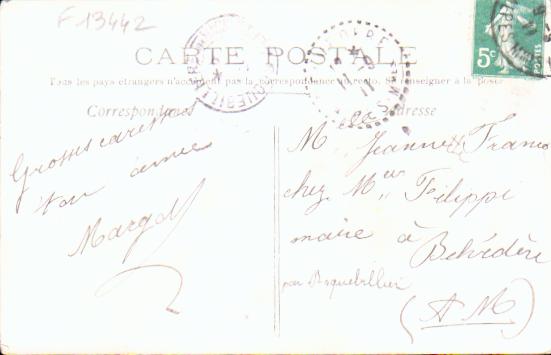 F 13442
CARTE POSTALE
Tous les pays étrangers n'acceptent pas la correspondance au recto. Se renseigner à la poste
Correspondance
Adresse
5c
POSTES
Grosses caresses
ton amie
Margot
M Jeanne Franco
chez M Filippi
maire à
Belvédère
par Roquebillier
(AM)